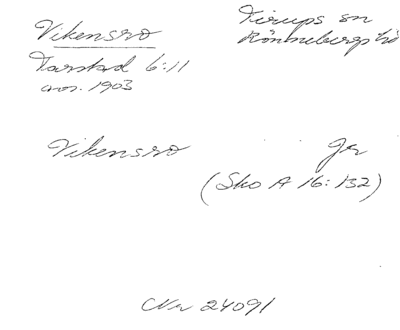 Vikensro
Tirups sn
Rönnebergs hd
Tarstad 6:11
avs. 1903
Vikensro
Jr
(Sko A 16:132)
Nr 24091